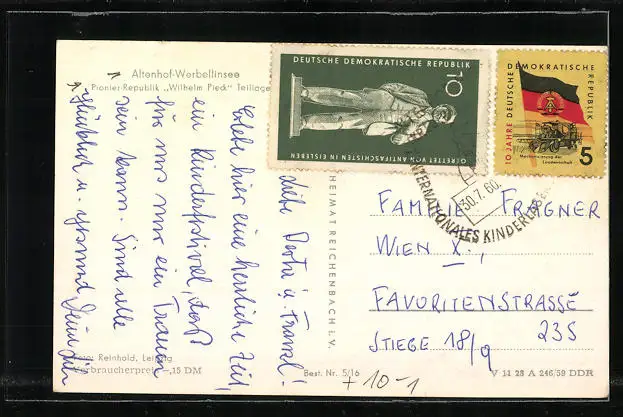 Altenhof-Werbellinsee
Pionier-Republik „Wilhelm Pieck“ Teillage
Liebe Berta u. Franzl!
Erlebe hier eine herrliche Zeit,
ein Kinderfestival, daß
für uns nur ein Traum
sein kann. Sind alle
glücklich u. gesund
Foto: Reinhold, Leipzig
Verbraucherpreis -,15 DM
HEIMAT REICHENBACH i. V.
Best. Nr. 5/16
+ 10-1
V 11 28 A 246/59 DDR
DEUTSCHE DEMOKRATISCHE REPUBLIK
10
GERETTET VON ANTIFASCHISTEN IN EISLEBEN
10 JAHRE DEUTSCHE DEMOKRATISCHE REPUBLIK
5
INTERNATIONALES KINDERLAGER
30.7.60.
FAMILIE FRAGNER
WIEN X.,
FAVORITENSTRASSE
235
STIEGE 18/9